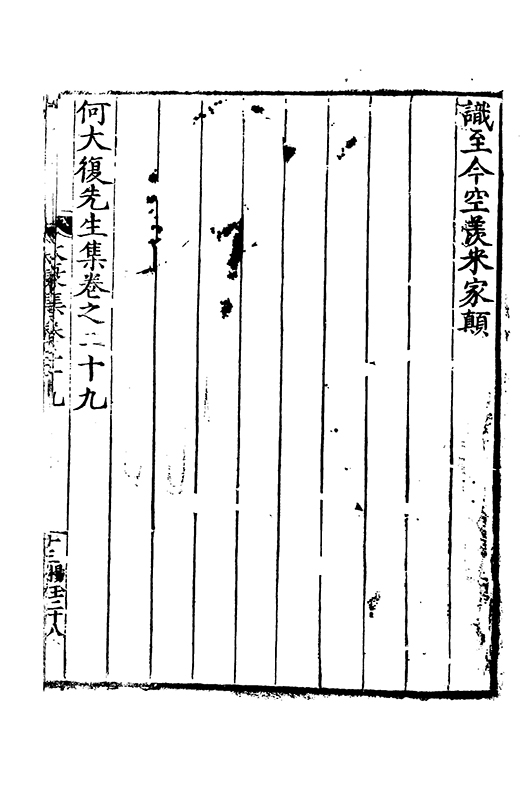 識至今空羨米家顛
何大復先生集卷之二十九
集卷二十九
十二 楊 二十八